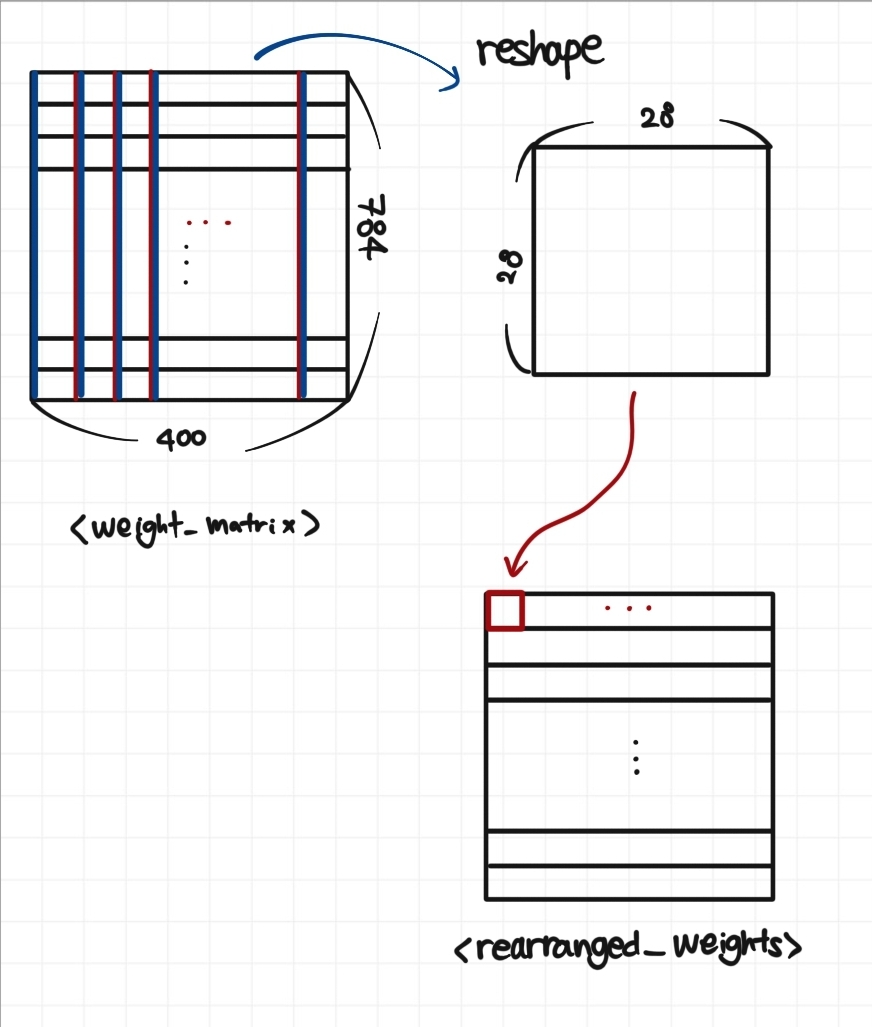 reshape
28
784
28
400
<weight_matrix>
<rearranged_weights>